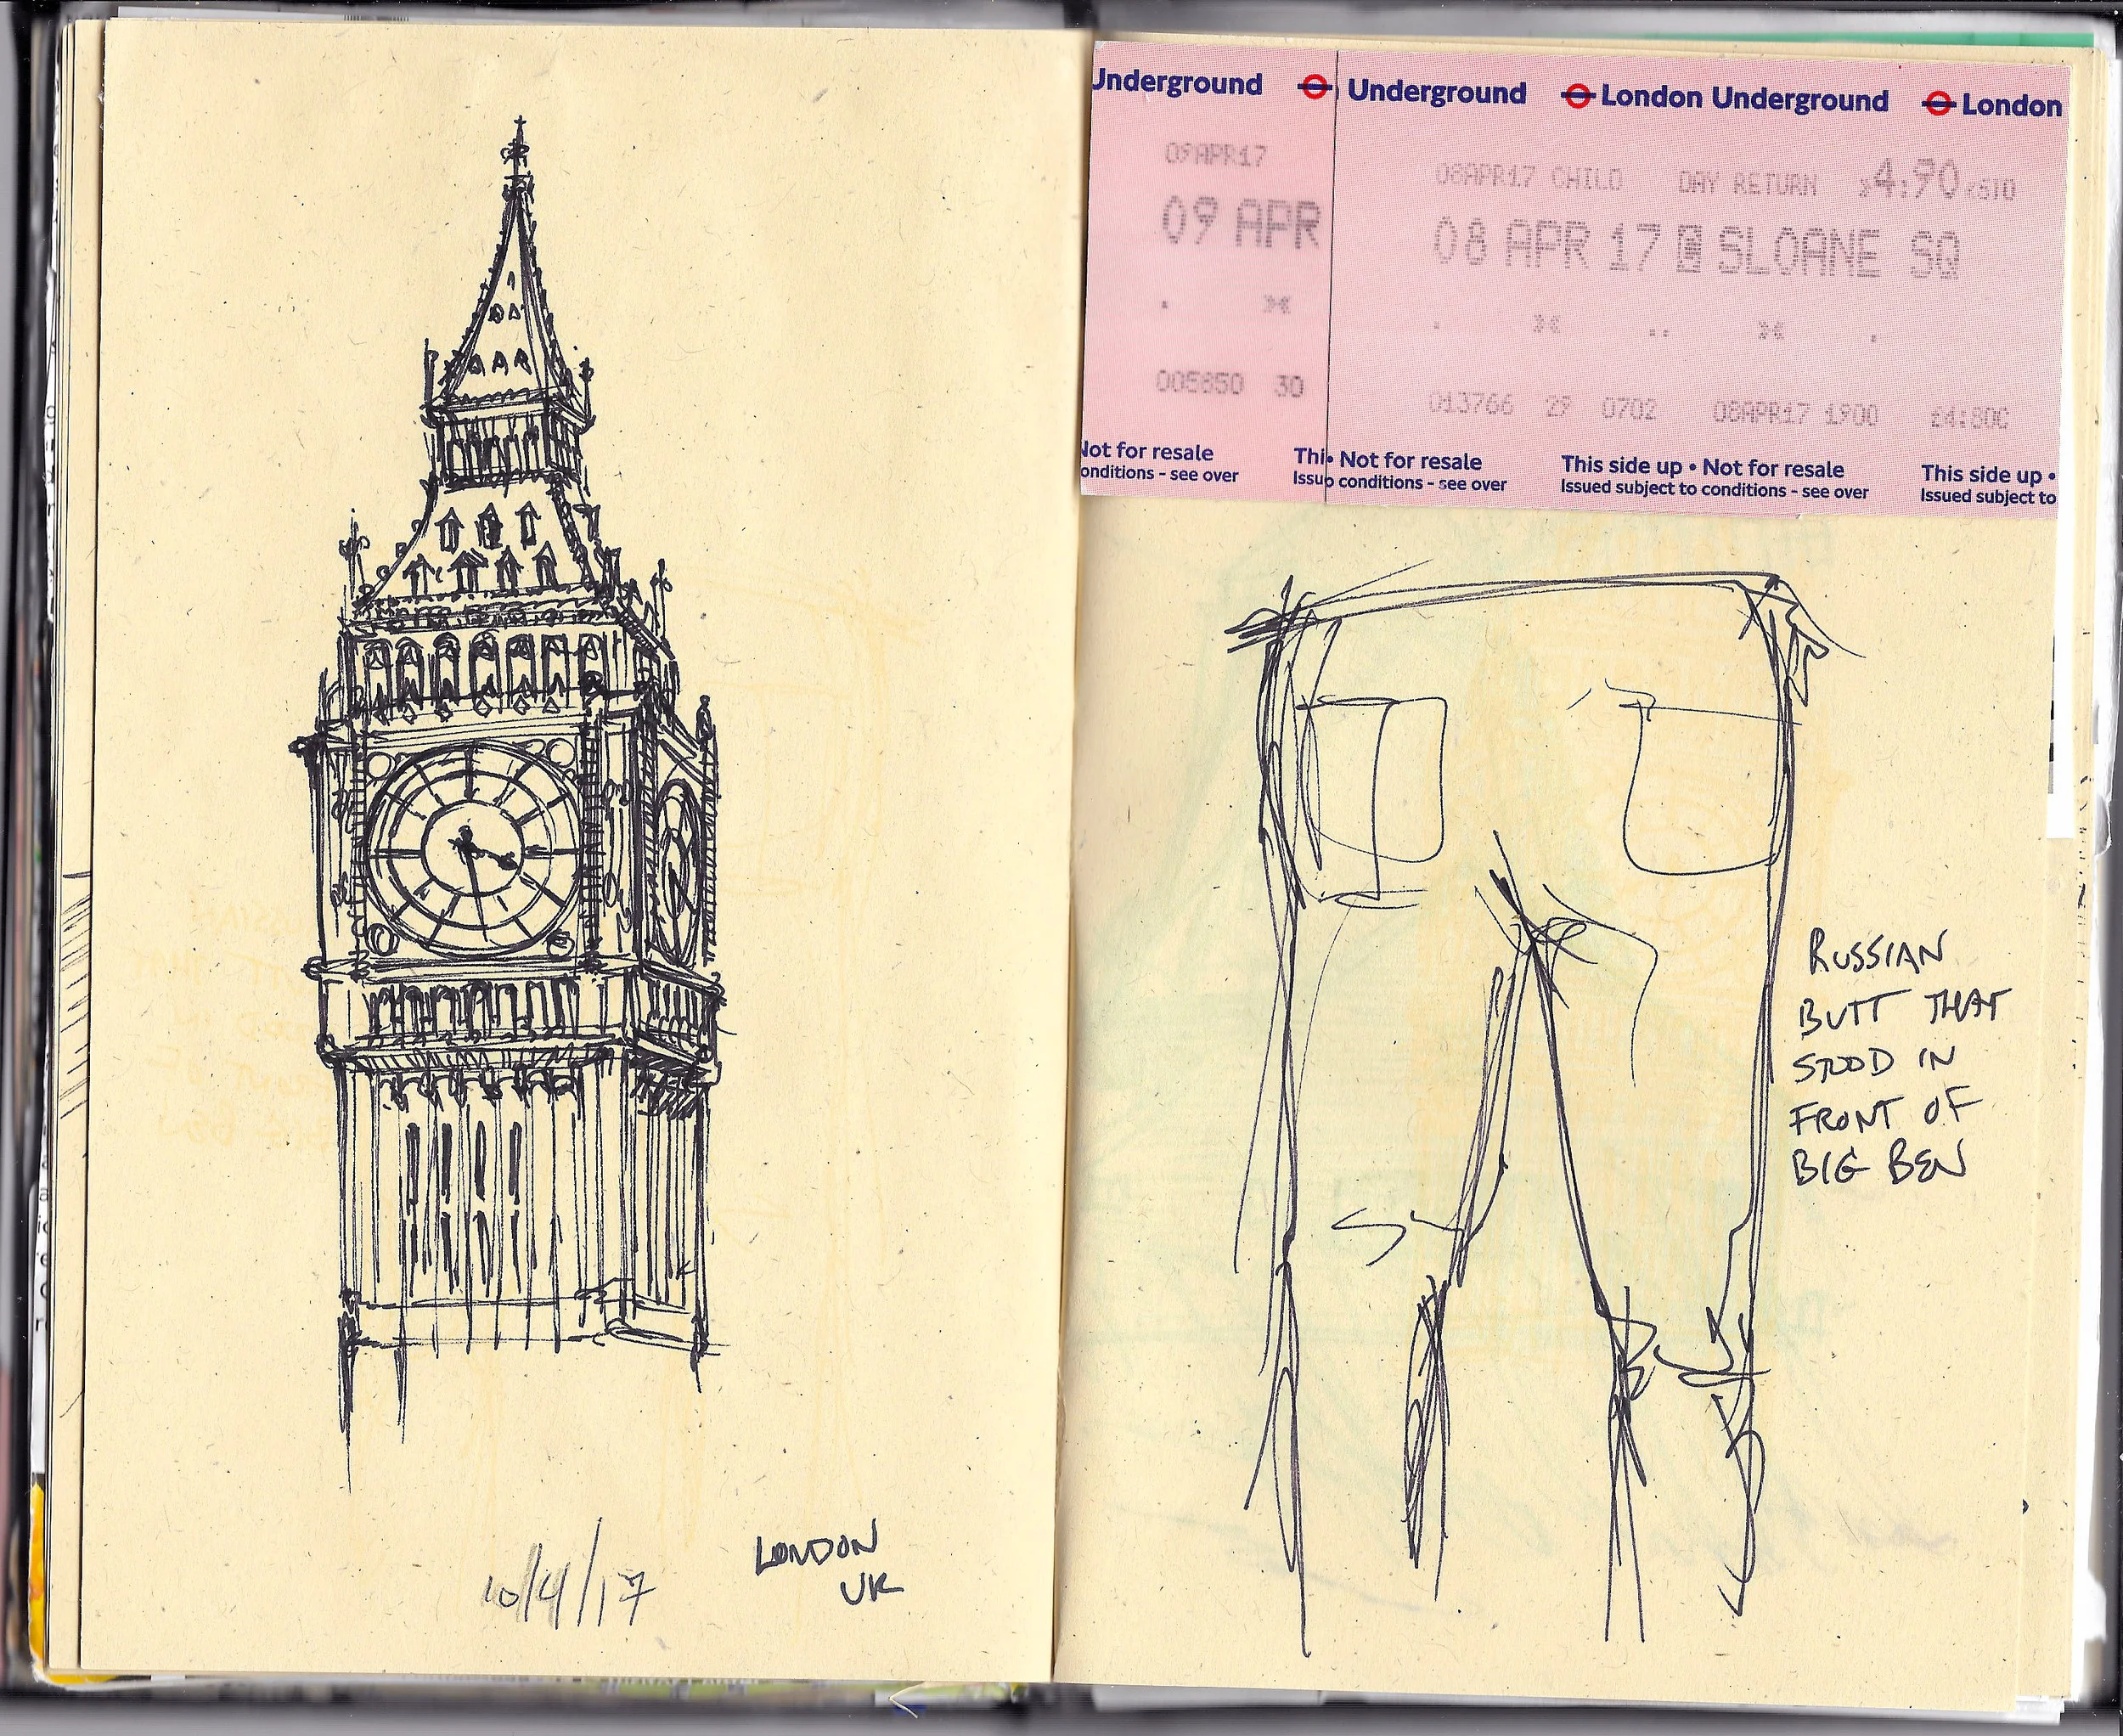 10/4/17
LONDON
UK
Underground
Underground London Underground London
09APR17
09 APR
005850 30
Not for resale
onditions - see over
08APR17 CHILD DAY RETURN 4:90
08 APR 17 SLOANE SQ
013766 29 0702 08APR17 1900 £4:80C
Thi• Not for resale This side up • Not for resale This side up •
Issuo conditions - see over Issued subject to conditions - see over Issued subject to
RUSSIAN
BUTT THAT
STOOD IN
FRONT OF
BIG BEN